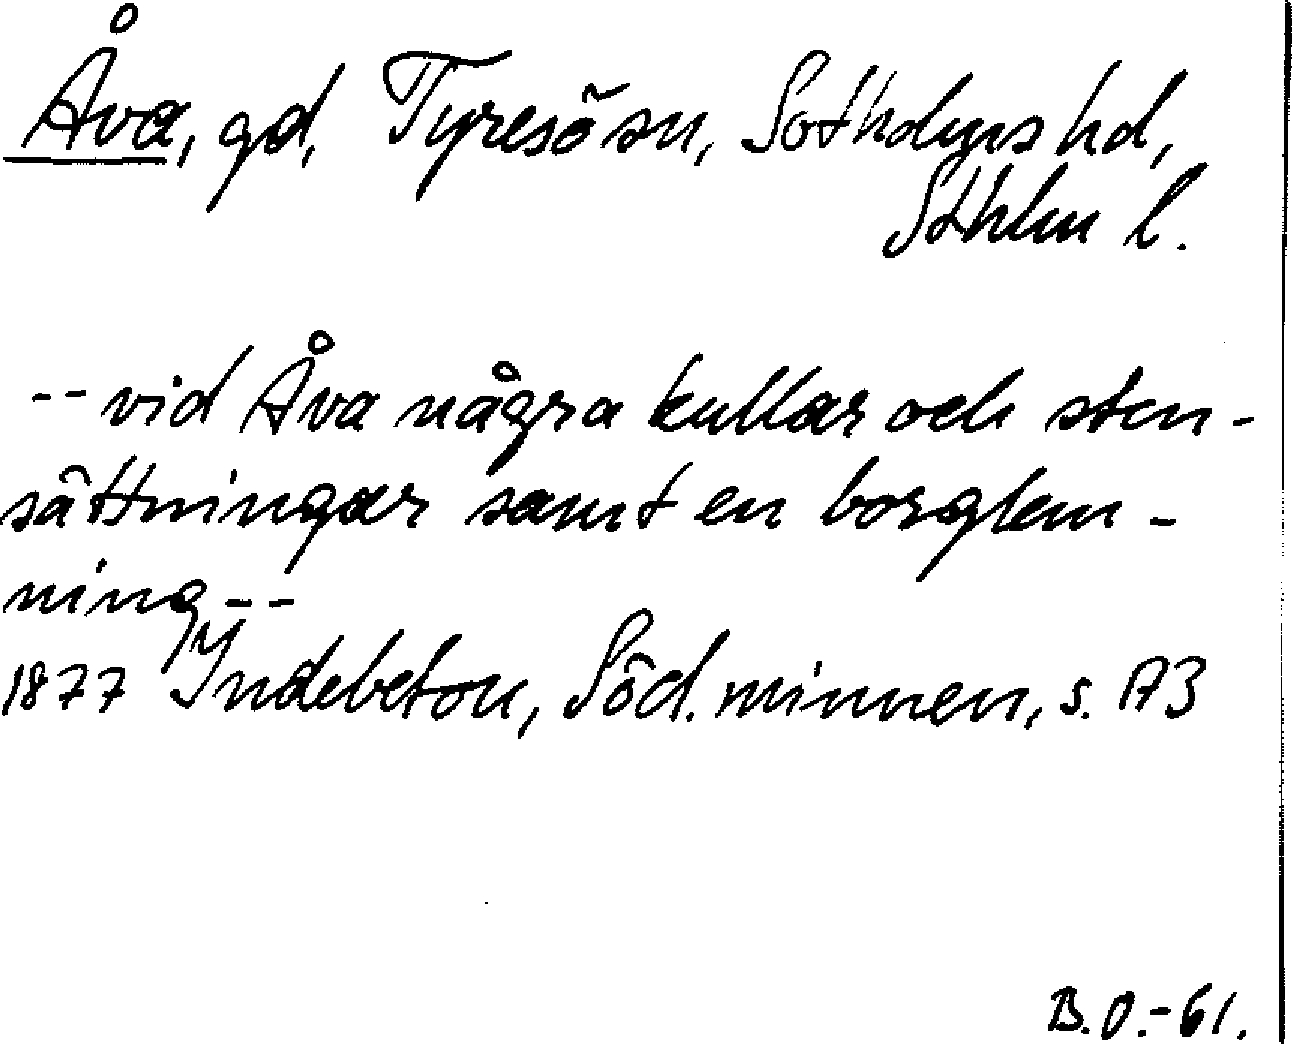 Åva, gd, Tyresö sn, Sothdyns hd,
Sthlm l.
-- vid Åva några kullar och sten-
sättningar samt en borglem-
ning --
1877 Indebetou, Söd. minnen, s. 173
B.O.-61.